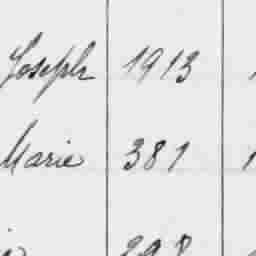 Joseph 1913
Marie 381